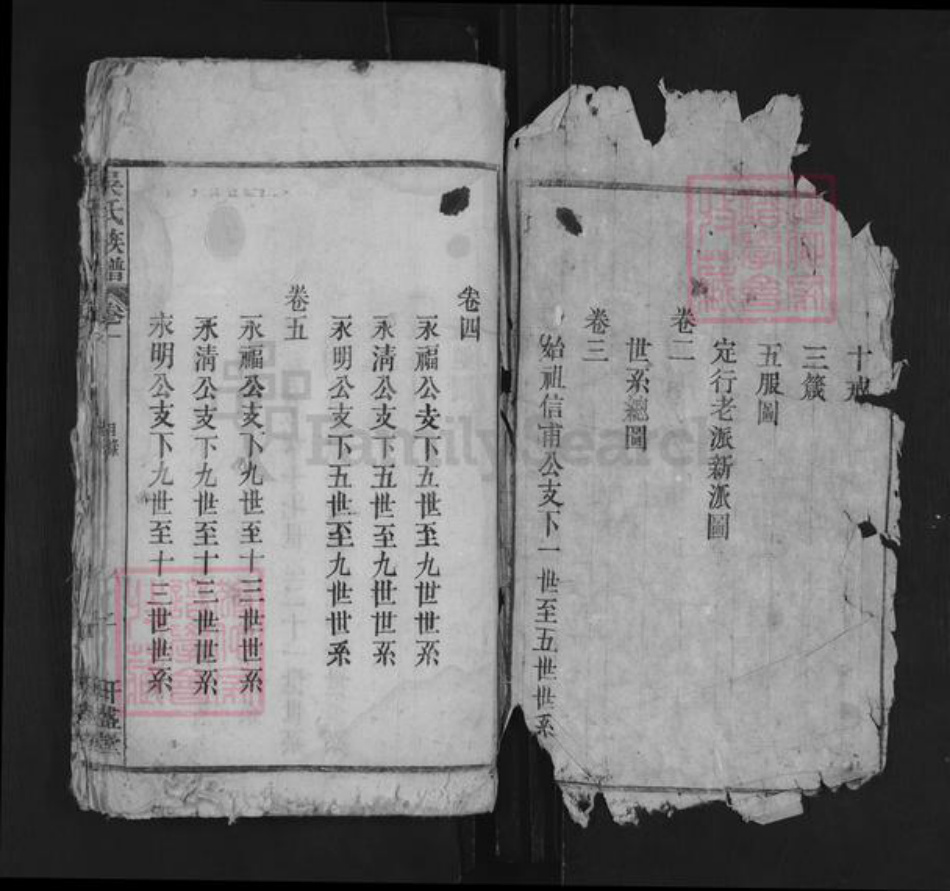 十戒
三箴
五服圖
定行老派新派圖
卷二
世系總圖
卷三
始祖信甫公支下一世至五世世系
卷四
永福公支下五世至九世世系
永清公支下五世至九世世系
永明公支下五世至九世世系
卷五
永福公支下九世至十三世世系
永清公支下九世至十三世世系
永明公支下九世至十三世世系
吳氏族譜
卷一
目錄
FamilySearch